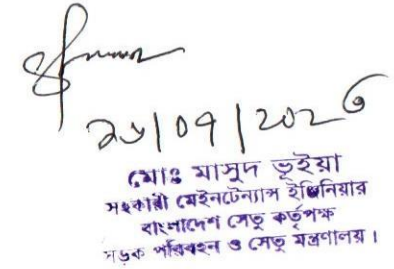 মোঃ মাসুদ ভূইয়া
সহকারী মেইনটেন্যান্স ইঞ্জিনিয়ার
বাংলাদেশ সেতু কর্তৃপক্ষ
সড়ক পরিবহন ও সেতু মন্ত্রণালয় ।